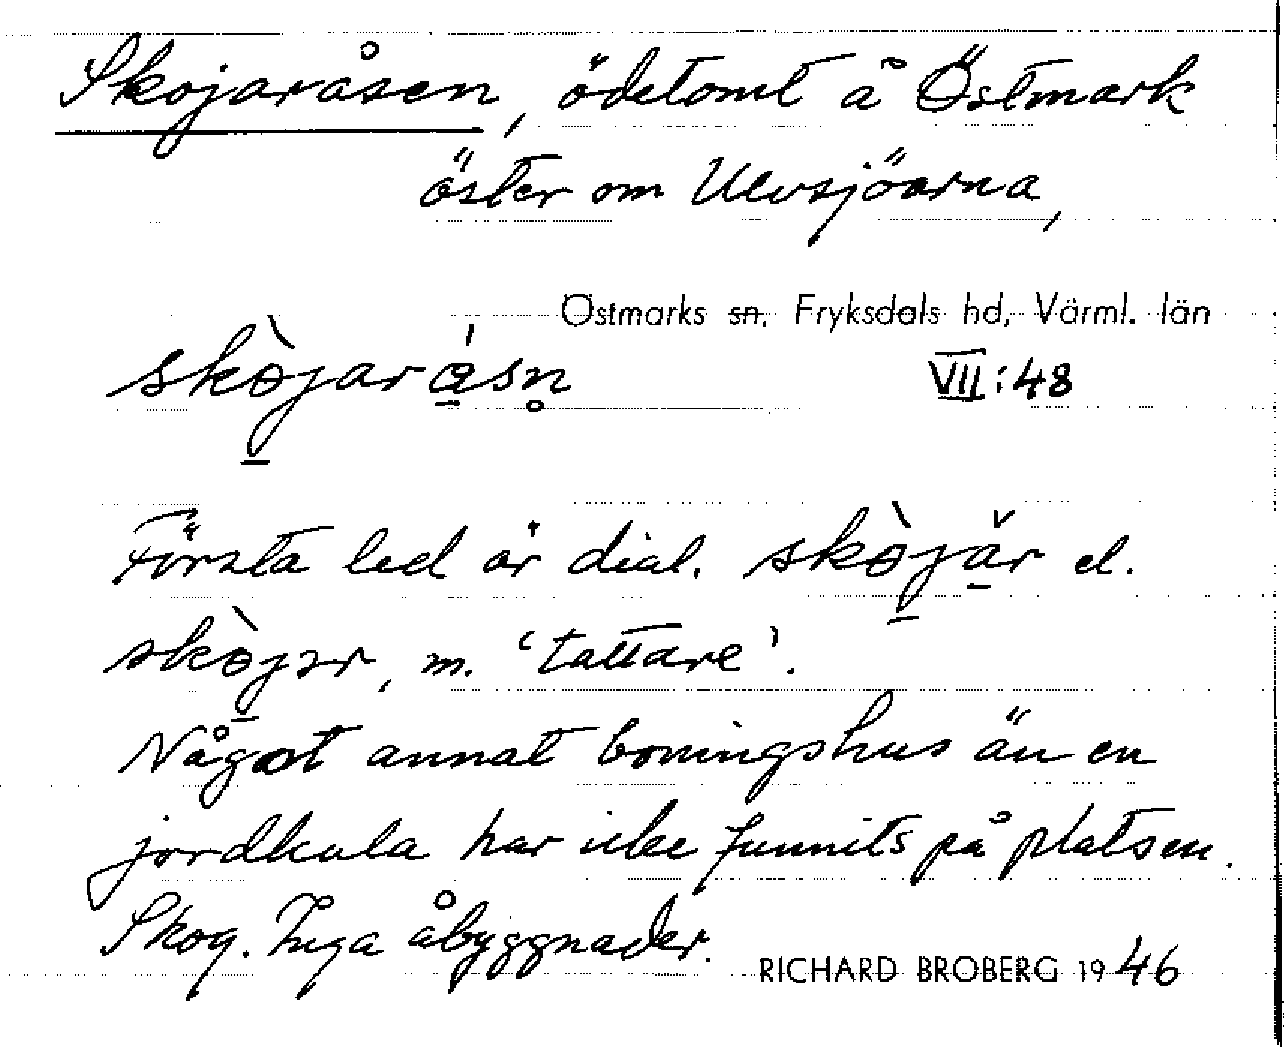 Skojaråsen, ödetomt å Östmark
öster om Ulvsjöarna,
Östmarks sn, Fryksdals hd, Värml. län
skòjarásn̥
VII:48
Första led är dial. skòjăr el.
skòjər, m. 'tattare'.
Något annat boningshus än en
jordkula har icke funnits på platsen.
Skog. Inga åbyggnader.
RICHARD BROBERG 1946